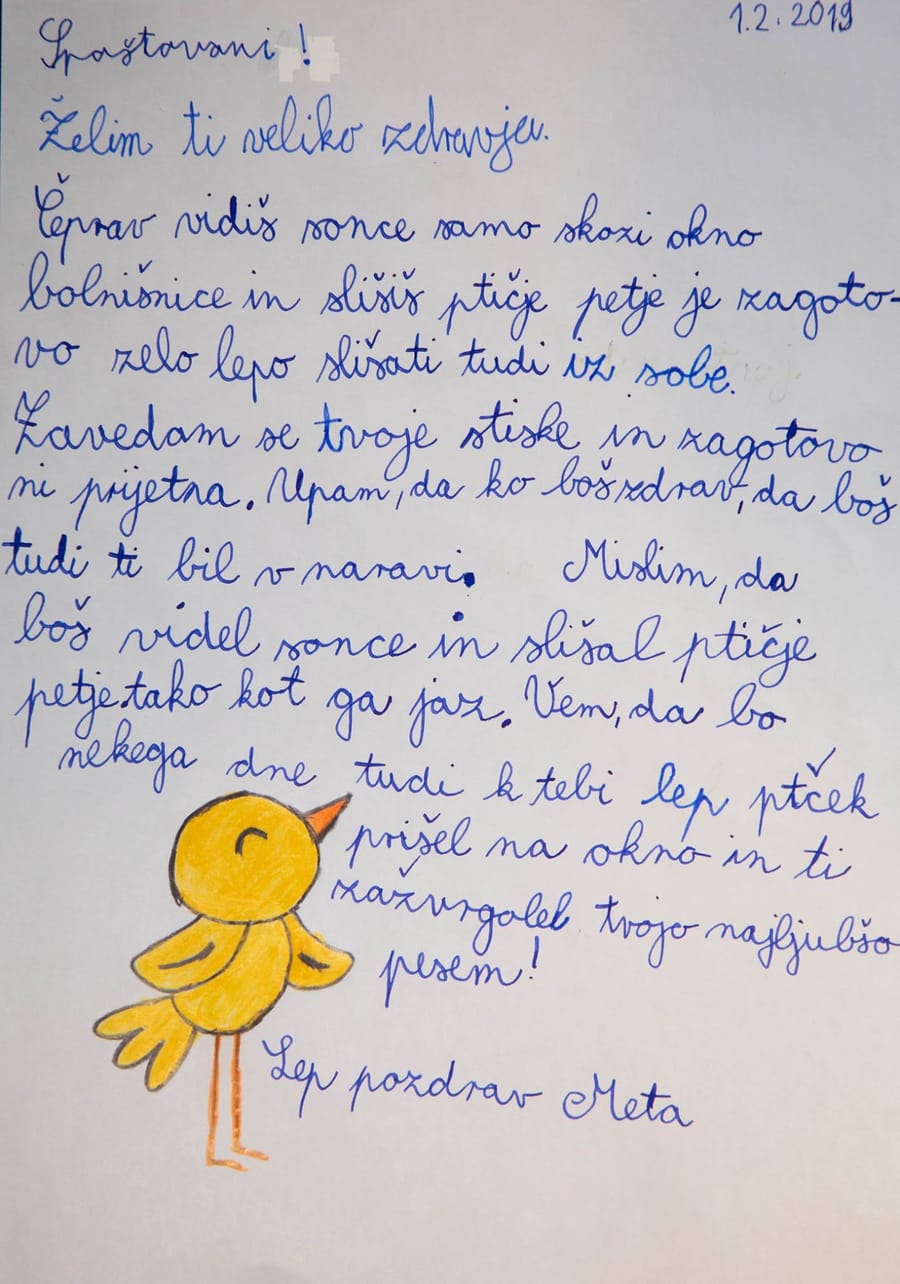 1.2.2019
Spoštovani!
Želim ti veliko zdravja.
Čeprav vidiš sonce samo skozi okno
bolnišnice in slišiš ptičje petje je zagoto-
vo zelo lepo slišati tudi iz sobe.
Zavedam se tvoje stiske in zagotovo
ni prijetna. Upam, da ko boš zdrav, da boš
tudi ti bil v naravi. Mislim, da
boš videl sonce in slišal ptičje
petje.tako kot ga jaz. Vem, da bo
nekega dne tudi k tebi lep ptček
prišel na okno in ti
zažvrgolel tvojo najljubšo
pesem!
Lep pozdrav Meta